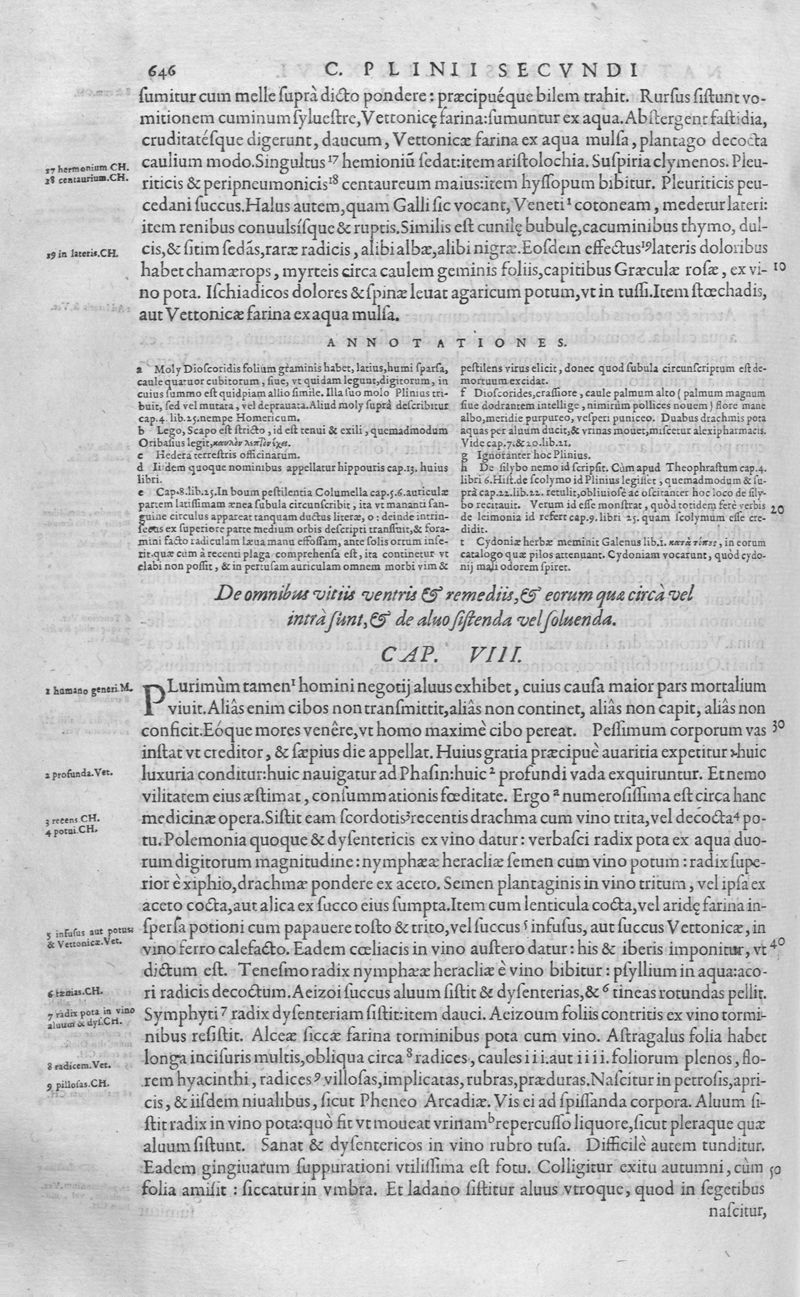 646 C. PLINII SECVNDI
ſumitur cum melle ſuprà dicto pondere: præcipuéque bilem trahit. Rurſus ſiſtunt vo-
mitionem cuminum ſylueſtre, Vettonicę farina: ſumuntur ex aqua. Abſtergent faſtidia,
cruditatéſque digerunt, daucum, Vettonicæ farina ex aqua mulſa, plantago decocta
caulium modo. Singultus¹⁷ hemioniũ ſedat: item ariſtolochia. Suſpiria clymenos. Pleu-
17 hermonium CH.
riticis & peripneumonicis¹⁸ centaureum maius: item hyſſopum bibitur. Pleuriticis peu-
18 centaurium. CH.
cedani ſuccus. Halus autem, quam Galli ſic vocant, Veneti¹ cotoneam, medetur lateri:
item renibus conuulsíſque & ruptis. Similis eſt cunilę bubulę, cacuminibus thymo, dul-
cis, & ſitim ſedãs, raræ radicis, alibi albæ, alibi nigræ. Eoſdem effectus¹⁹ lateris doloribus
19 in lateris. CH.
habet chamærops, myrteis circa caulem geminis foliis, capitibus Græculæ roſæ, ex vi- 10
no pota. Iſchiadicos dolores & ſpinæ leuat agaricum potum, vt in tuſſi. Item ſtœchadis,
aut Vettonicæ farina ex aqua mulſa.
ANNOTATIONES.
a Moly Dioſcoridis folium graminis habet, latius, humi ſparſa,
caule quatuor cubitorum, ſiue, vt quidam legunt, digitorum, in
cuius ſummo eſt quidpiam allio ſimile. Illa ſuo molo Plinius tri-
buit, ſed vel mutata, vel deprauata. Aliud moly ſuprà deſcribitur
cap. 4. lib. 25. nempe Homericum.
b Lego, Scapo eſt ſtricto, id eſt tenui & exili, quemadmodum
Oribaſius legit,
c Hedera terreſtris officinarum.
d Iiſdem quoque nominibus appellatur hippouris cap. 13. huius
libri.
e Cap. 8. lib. 25. In boum peſtilentia Columella cap. 5. 6. auriculæ
partem latiſſimam ænea ſubula circunſcribit, ita vt mananti ſan-
guine circulus appareat tanquam ductus literæ, o: deinde intrin-
ſecus ex ſuperiore parte medium orbis deſcripti tranſſuit, & fora-
mini facto radiculam læua manu effoſſam, ante ſolis ortum inſe-
rit. quæ cùm à recenti plaga comprehenſa eſt, ita continetur vt
elabi non poſſit, & in pertuſam auriculam omnem morbi vim &
peſtilens virus elicit, donec quod ſubula circunſcriptum eſt de-
mortuum excidat.
f Dioſcorides, craſſiore, caule palmum alto (palmum magnum
ſiue dodrantem intellige, nimirùm pollices nouem) flore mane
albo, meridie purpureo, veſperi puniceo. Duabus drachmis pota
aquas per aluum ducit, & vrinas mouet, miſcetur alexipharmacis.
Vide cap. 7. & 20. lib. 21.
g Ignoranter hoc Plinius.
h De ſilybo nemo id ſcripſit. Cùm apud Theophraſtum cap. 4.
libri 6. Hiſt. de ſcolymo id Plinius legiſſet, quemadmodum & ſu-
prà cap. 22. lib. 22. retulit, obliuioſè ac oſcitanter hoc loco de ſily-
bo recitauit. Verum id eſſe monſtrat, quòd totidem ferè verbis 20
de leimonia id refert cap. 9. libri 25. quam ſcolymum eſſe cre-
didit.
t Cydoniæ herbæ meminit Galenus lib. 1. κατὰ τόπους, in eorum
catalogo quæ pilos attenuant. Cydoniam vocarunt, quòd cydo-
nij mali odorem ſpiret.
De omnibus vitiis ventris & remediis, & eorum qua circà vel
intrà ſunt, & de aluo ſiſtenda vel ſoluenda.
CAP. VIII.
PLurimùm tamen¹ homini negotij aluus exhibet, cuius cauſa maior pars mortalium
1 humano generi. M.
viuit. Aliâs enim cibos non tranſmittit, aliâs non continet, aliâs non capit, aliâs non
conficit. Eóque mores venêre, vt homo maximè cibo pereat. Peſſimum corporum vas 30
inſtat vt creditor, & ſæpius die appellat. Huius gratia præcipuè auaritia expetitur: huic
luxuria conditur: huic nauigatur ad Phaſin: huic² profundi vada exquiruntur. Et nemo
2 profunda. Vet.
vilitatem eius æſtimat, conſummationis fœditate. Ergo ᵃ numeroſiſſima eſt circa hanc
medicinæ opera. Siſtit eam ſcordotis³ recentis drachma cum vino trita, vel decocta⁴ po-
3 recens CH.
4 potui. CH.
tu. Polemonia quoque & dyſentericis ex vino datur: verbaſci radix pota ex aqua duo-
rum digitorum magnitudine: nymphææ heracliæ ſemen cum vino potum: radix ſupe-
rior è xiphio, drachmæ pondere ex aceto. Semen plantaginis in vino tritum, vel ipſa ex
aceto cocta, aut alica ex ſucco eius ſumpta. Item cum lenticula cocta, vel aridę farina in-
ſperſa potioni cum papauere toſto & trito, vel ſuccus⁵ infuſus, aut ſuccus Vettonicæ, in
5 infuſus aut potus
& Vettonicæ. Vet.
vino ferro calefacto. Eadem cœliacis in vino auſtero datur: his & iberis imponitur, vt 40
dictum eſt. Teneſmo radix nymphææ heracliæ è vino bibitur: pſyllium in aqua: aco-
ri radicis decoctum. Aeizoi ſuccus aluum ſiſtit & dyſenterias, & ⁶ tineas rotundas pellit.
6 tænias. CH.
Symphyti⁷ radix dyſenteriam ſiſtit: item dauci. Aeizoum foliis contritis ex vino tormi-
7 radix pota in vino
aluum & dyſ. CH.
nibus reſiſtit. Alceæ ſiccæ farina torminibus pota cum vino. Aſtragalus folia habet
longa inciſuris multis, obliqua circa ⁸ radices, caules iii. aut iiii. foliorum plenos, flo-
8 radicem. Vet.
rem hyacinthi, radices⁹ villoſas, implicatas, rubras, præduras. Naſcitur in petroſis, apri-
9 pilloſas. CH.
cis, & iiſdem niualibus, ſicut Pheneo Arcadiæ. Vis ei ad ſpiſſanda corpora. Aluum ſi-
ſtit radix in vino pota: quò fit vt moueat vrinam ᵇ repercuſſo liquore, ſicut pleraque quæ
aluum ſiſtunt. Sanat & dyſentericos in vino rubro tuſa. Difficilè autem tunditur.
Eadem gingiuarum ſuppurationi vtiliſſima eſt fotu. Colligitur exitu autumni, cùm 50
folia amiſit: ſiccatur in vmbra. Et ladano ſiſtitur aluus vtroque, quod in ſegetibus
naſcitur,